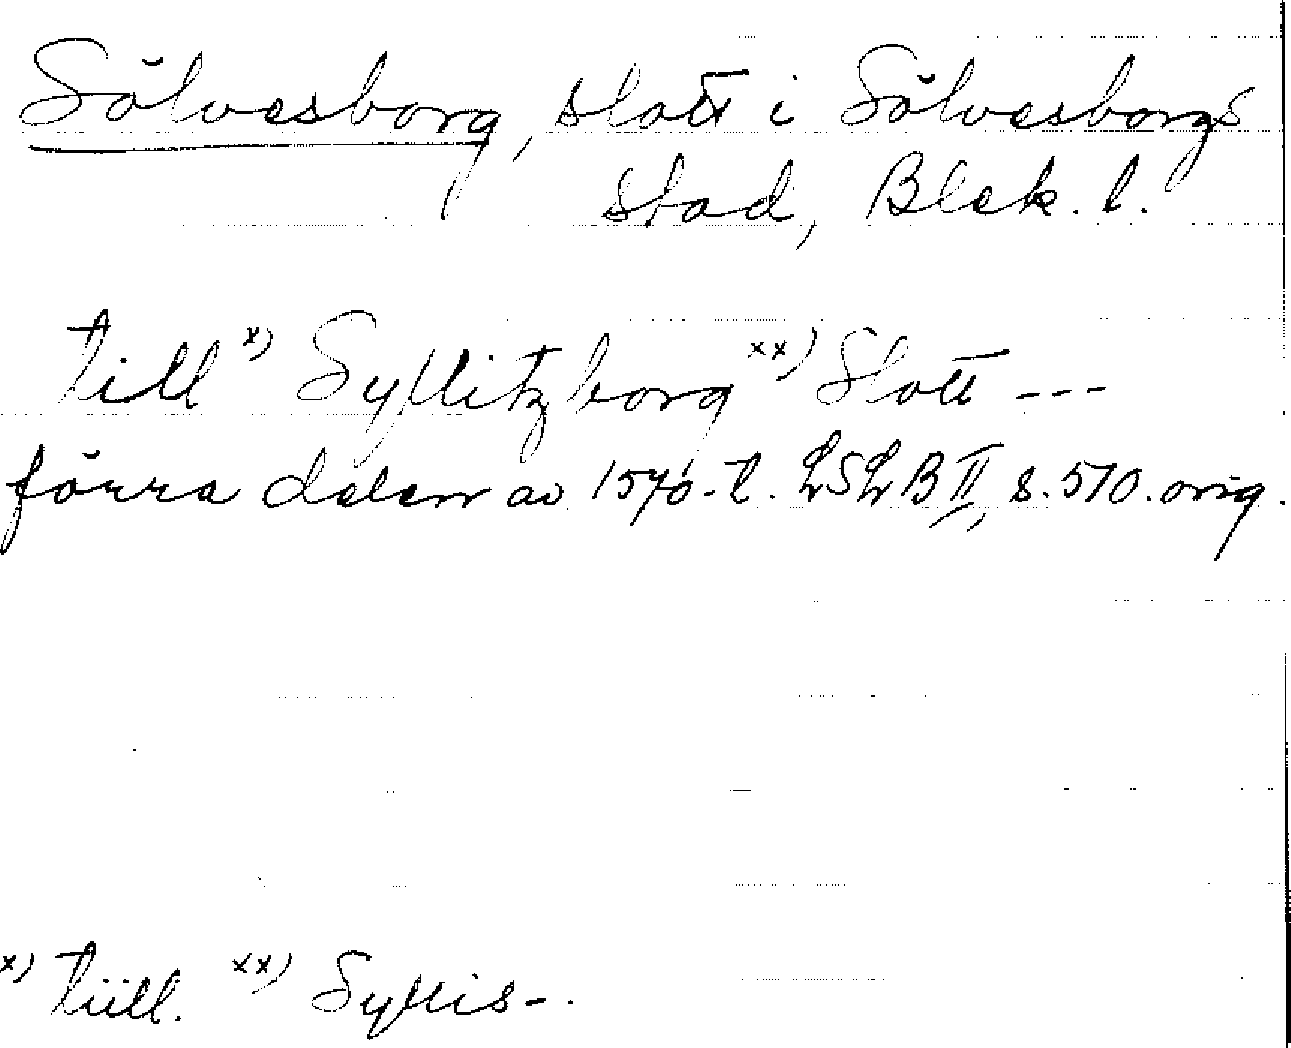 Sölvesborg, slott i Sölvesborgs
stad, Blek. l.
till x) Syllitzborg xx) Slott ---
förra delen av 1570-t. LSLB II, s. 510. orig.
x) tiill. xx) Syllis-.